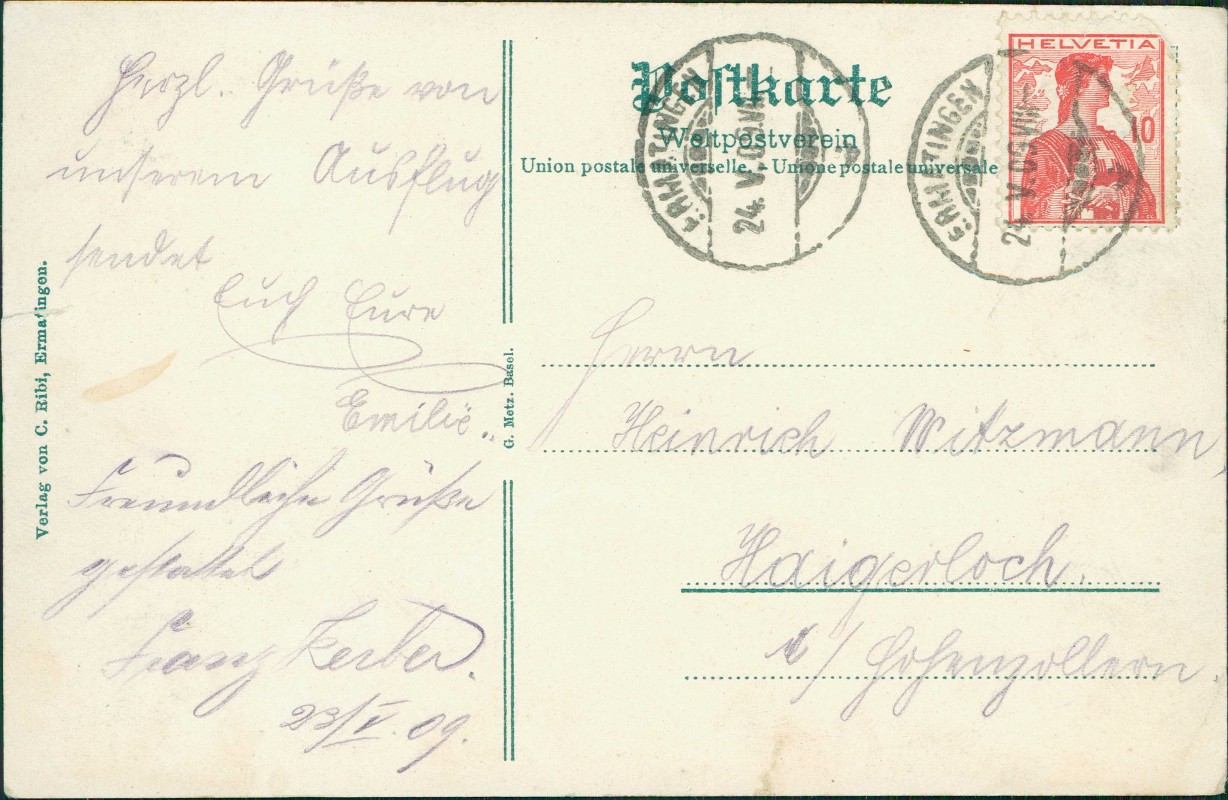 Herzl. Grüße von
unserem Ausflug
sendet
Euch Eure
Emilie„
Freundliche Grüße
gestattet
Franz Kerber.
23/V. 09.
Verlag von C. Ribi, Ermatingen.
G. Metz. Basel.
Postkarte
Weltpostverein
Union postale universelle. - Unione postale universale
ERMATINGEN
24. V. 09. VII
ERMATINGEN
24. V. 09. VIII
HELVETIA
10
Herrn
Heinrich Witzmann,
Haigerloch.
i/Hohenzollern.